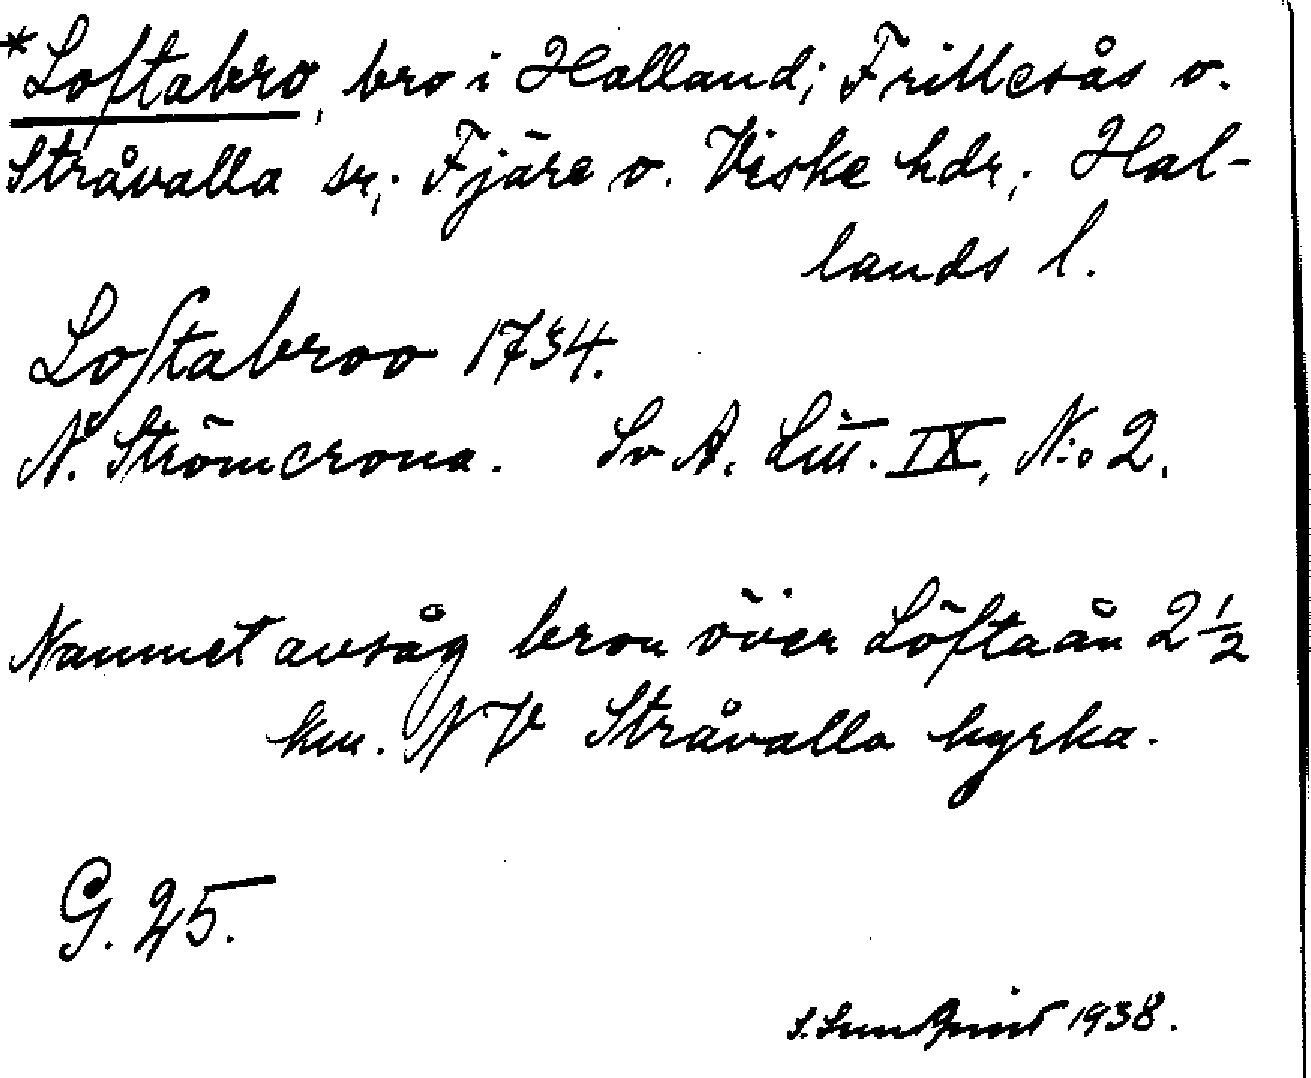 *Loftabro, bro i Halland; Frillesås o.
Stråvalla sr; Fjäre o. Viske hdr; Hal-
lands l.
Loftabroo 1734.
N. Strömcrona. Sv A. Litt. IX, N:o 2.
Namnet avsåg bron över Löftaån 2 1/2
km. NV Stråvalla kyrka.
G. 25.
1938.